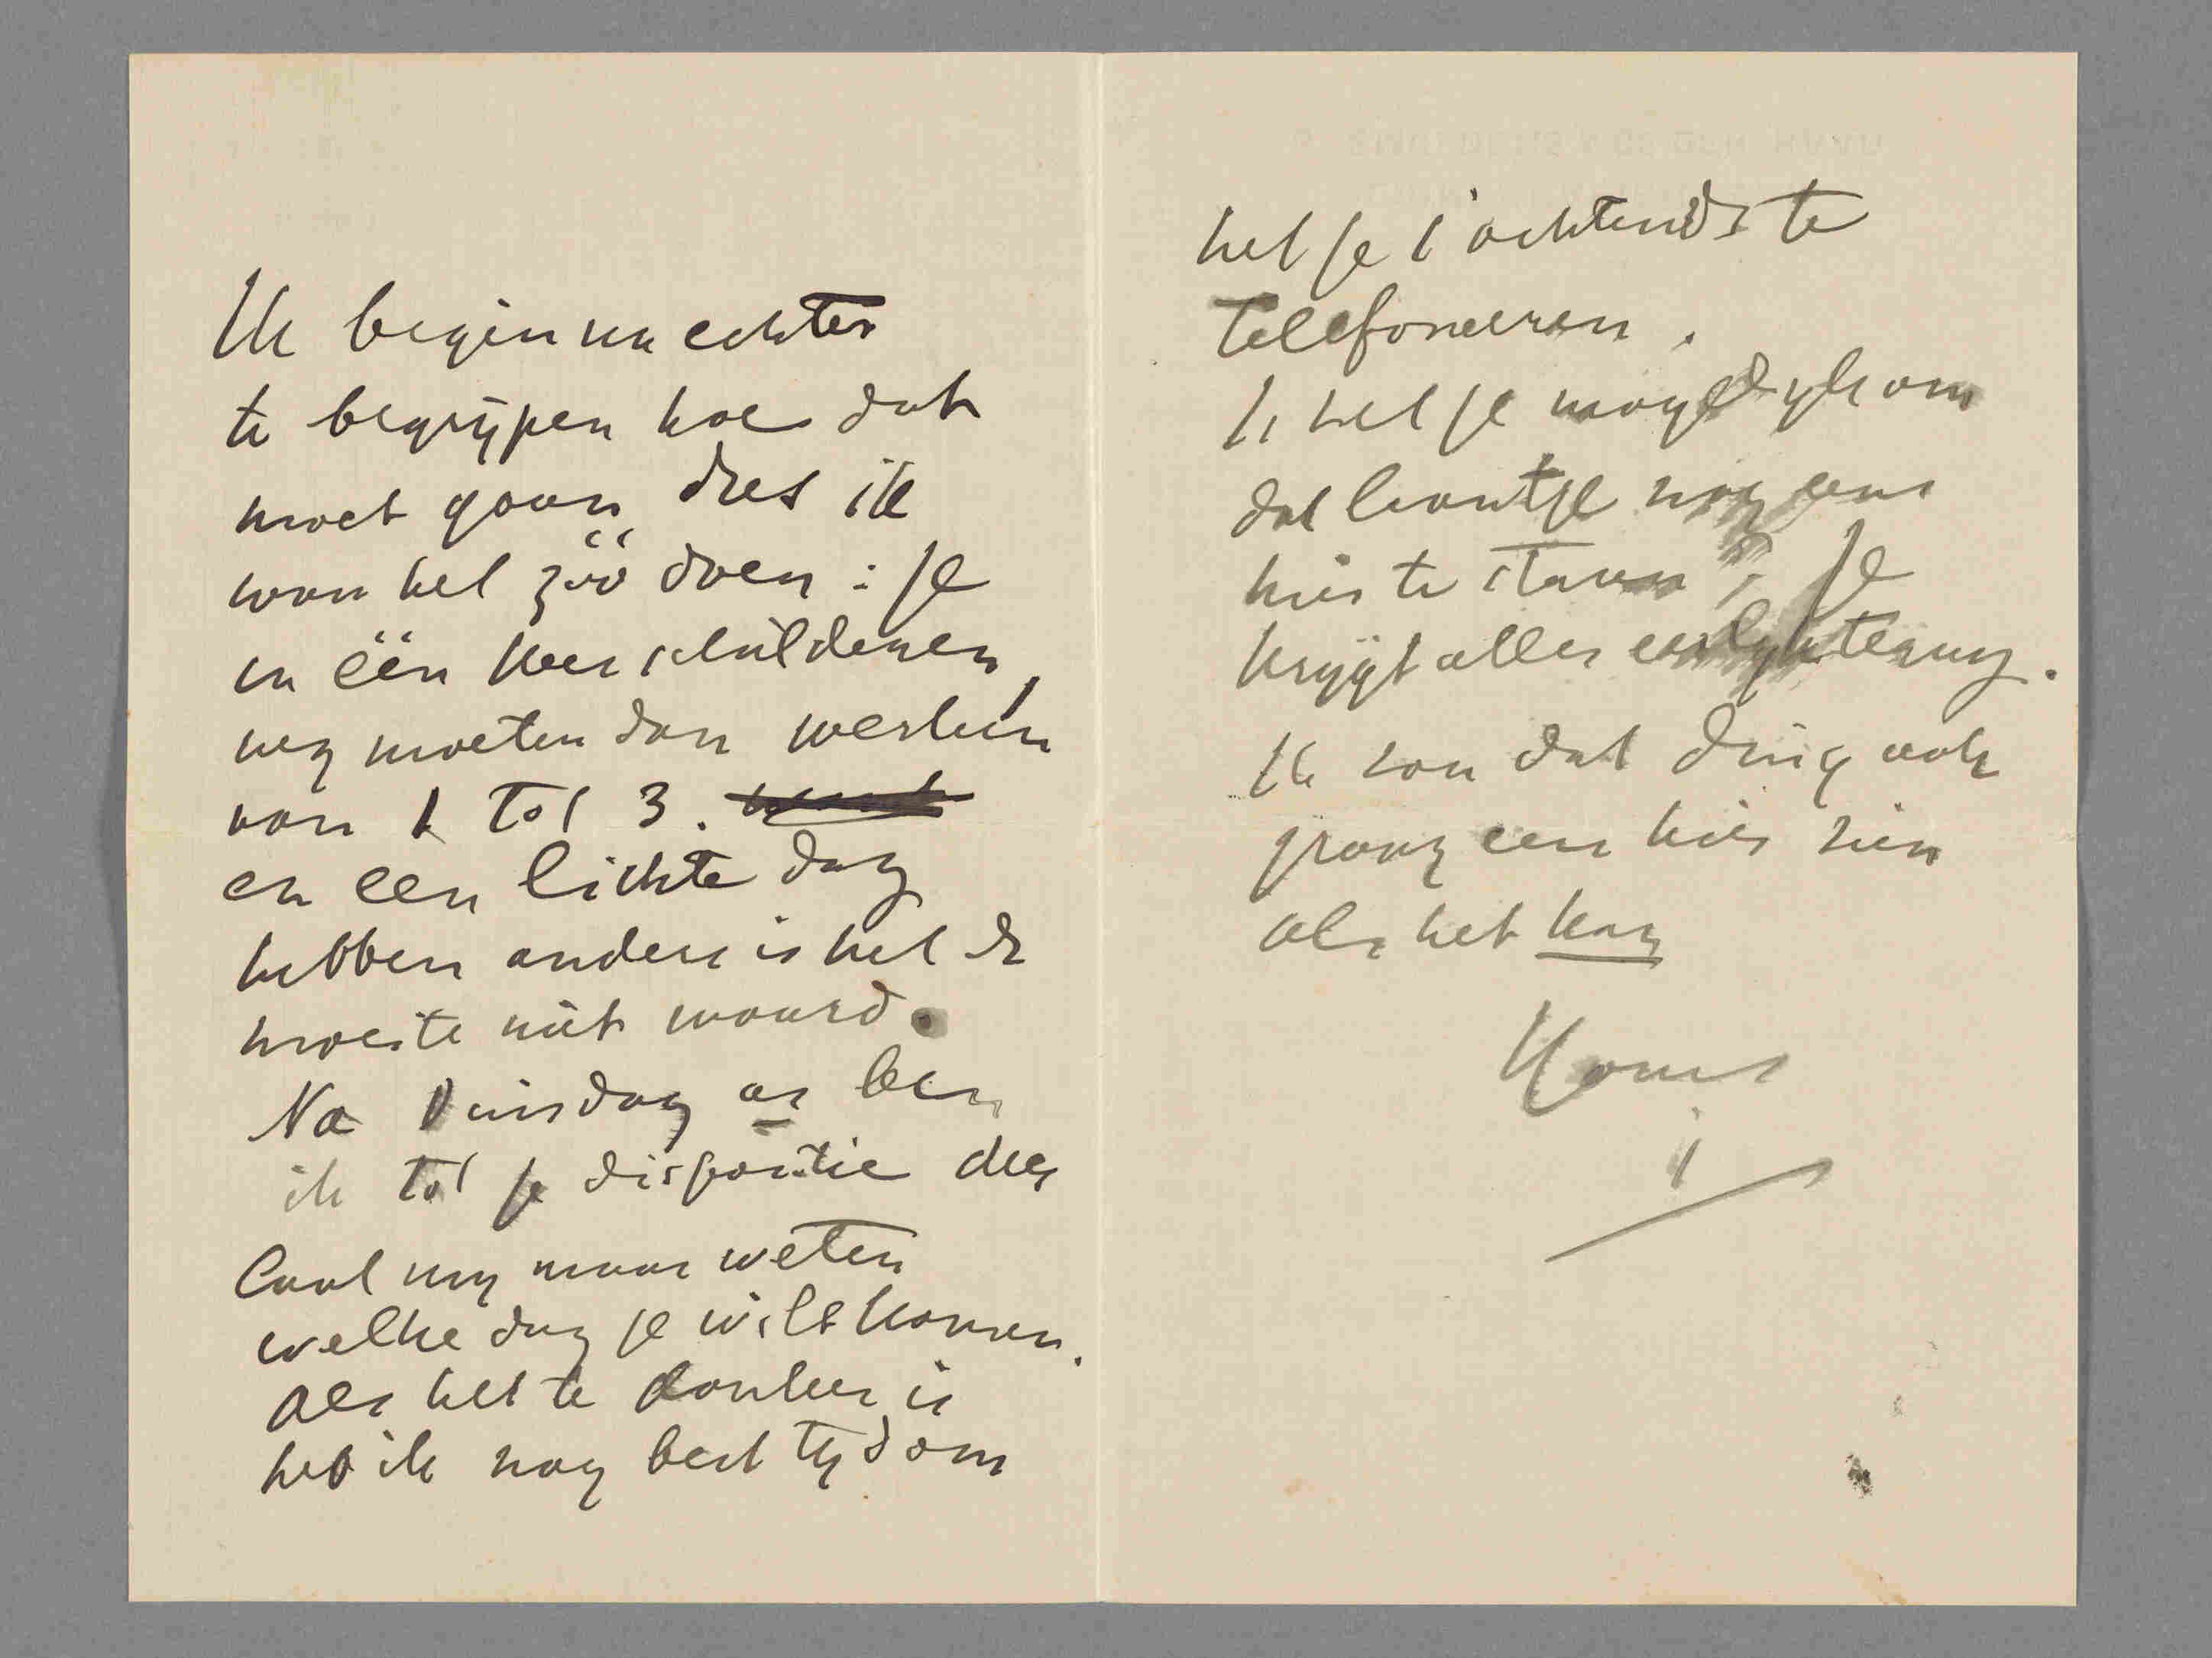 Ik begin nu echter
te begrijpen hoe dat
moet gaan, dus ik
wou het zóó doen: je
in één keer schilderen,
wij moeten dan werken
van 1 tot 3.
en een lichte dag
hebben anders is het de
moeite niet waard.
Na Dinsdag as ben
ik tot je dispositie dus
laat mij maar weten
welke dag je wilt komen.
Als het te donker is
heb ik nog best tijd om
het je 's ochtends te
telefoneeren.
Is het je mogelijk om
dat krantje nog eens
hier te sturen, je
krijgt alles eerlijk terug.
Ik zou dat ding ook
graag eens hier zien
als het kan